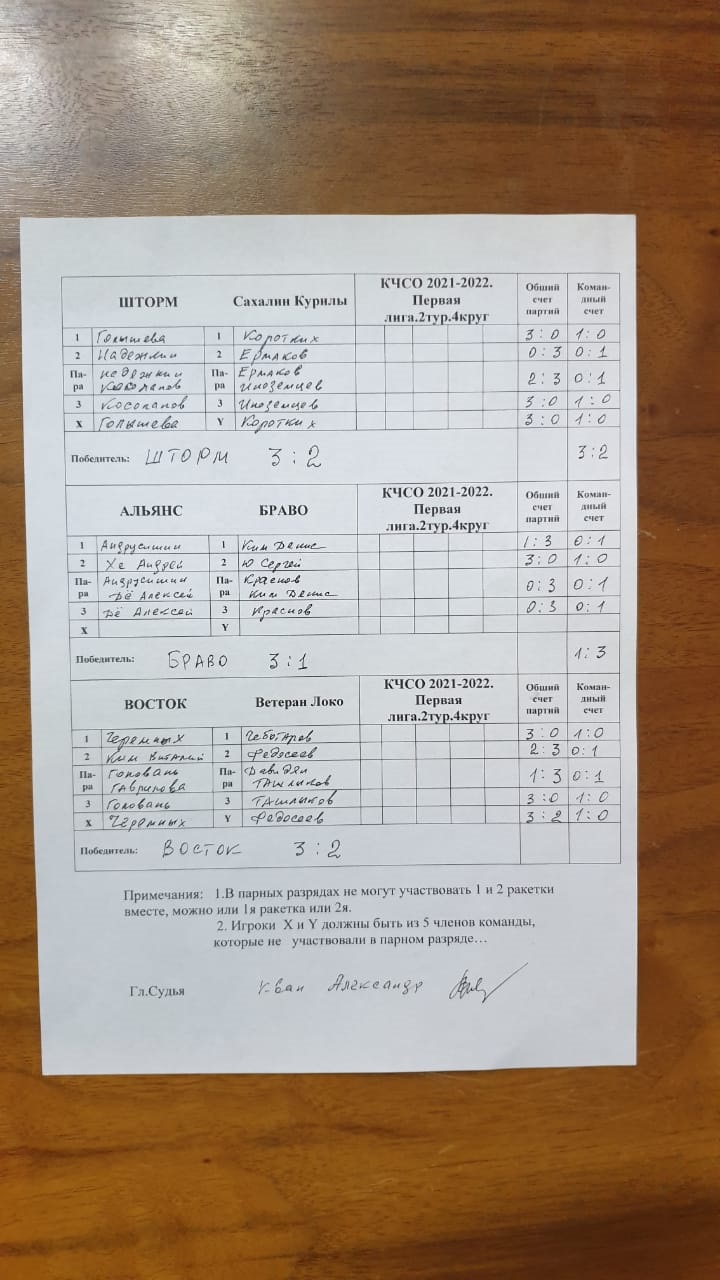 ШТОРМ Сахалин Курилы КЧСО 2021-2022. Первая лига.2тур.4круг Общий счет партий Коман-дный счет
1 Голышева 1 Коротких 3:0 1:0
2 Надежкин 2 Ермаков 0:3 0:1
Па-ра Надежкин Косолапов Па-ра Ермаков Иноземцев 2:3 0:1
3 Косолапов 3 Иноземцев 3:0 1:0
X Голышева Y Коротких 3:0 1:0
Победитель: ШТОРМ 3:2 3:2
АЛЬЯНС БРАВО КЧСО 2021-2022. Первая лига.2тур.4круг Общий счет партий Коман-дный счет
1 Андрусишин 1 Ким Денис 1:3 0:1
2 Хе Андрей 2 Ю Сергей 3:0 1:0
Па-ра Андрусишин Дё Алексей Па-ра Краснов Ким Денис 0:3 0:1
3 Дё Алексей 3 Краснов 0:3 0:1
X Y
Победитель: БРАВО 3:1 1:3
ВОСТОК Ветеран Локо КЧСО 2021-2022. Первая лига.2тур.4круг Общий счет партий Коман-дный счет
1 Черемных 1 Чеботарев 3:0 1:0
2 Ким Виталий 2 Федосеев 2:3 0:1
Па-ра Головань Гаврилова Па-ра Давидян Ташлыков 1:3 0:1
3 Головань 3 Ташлыков 3:0 1:0
X Черемных Y Федосеев 3:2 1:0
Победитель: ВОСТОК 3:2
Примечания: 1.В парных разрядах не могут участвовать 1 и 2 ракетки
вместе, можно или 1я ракетка или 2я.
2. Игроки X и Y должны быть из 5 членов команды,
которые не участвовали в парном разряде…
Гл.Судья Александр